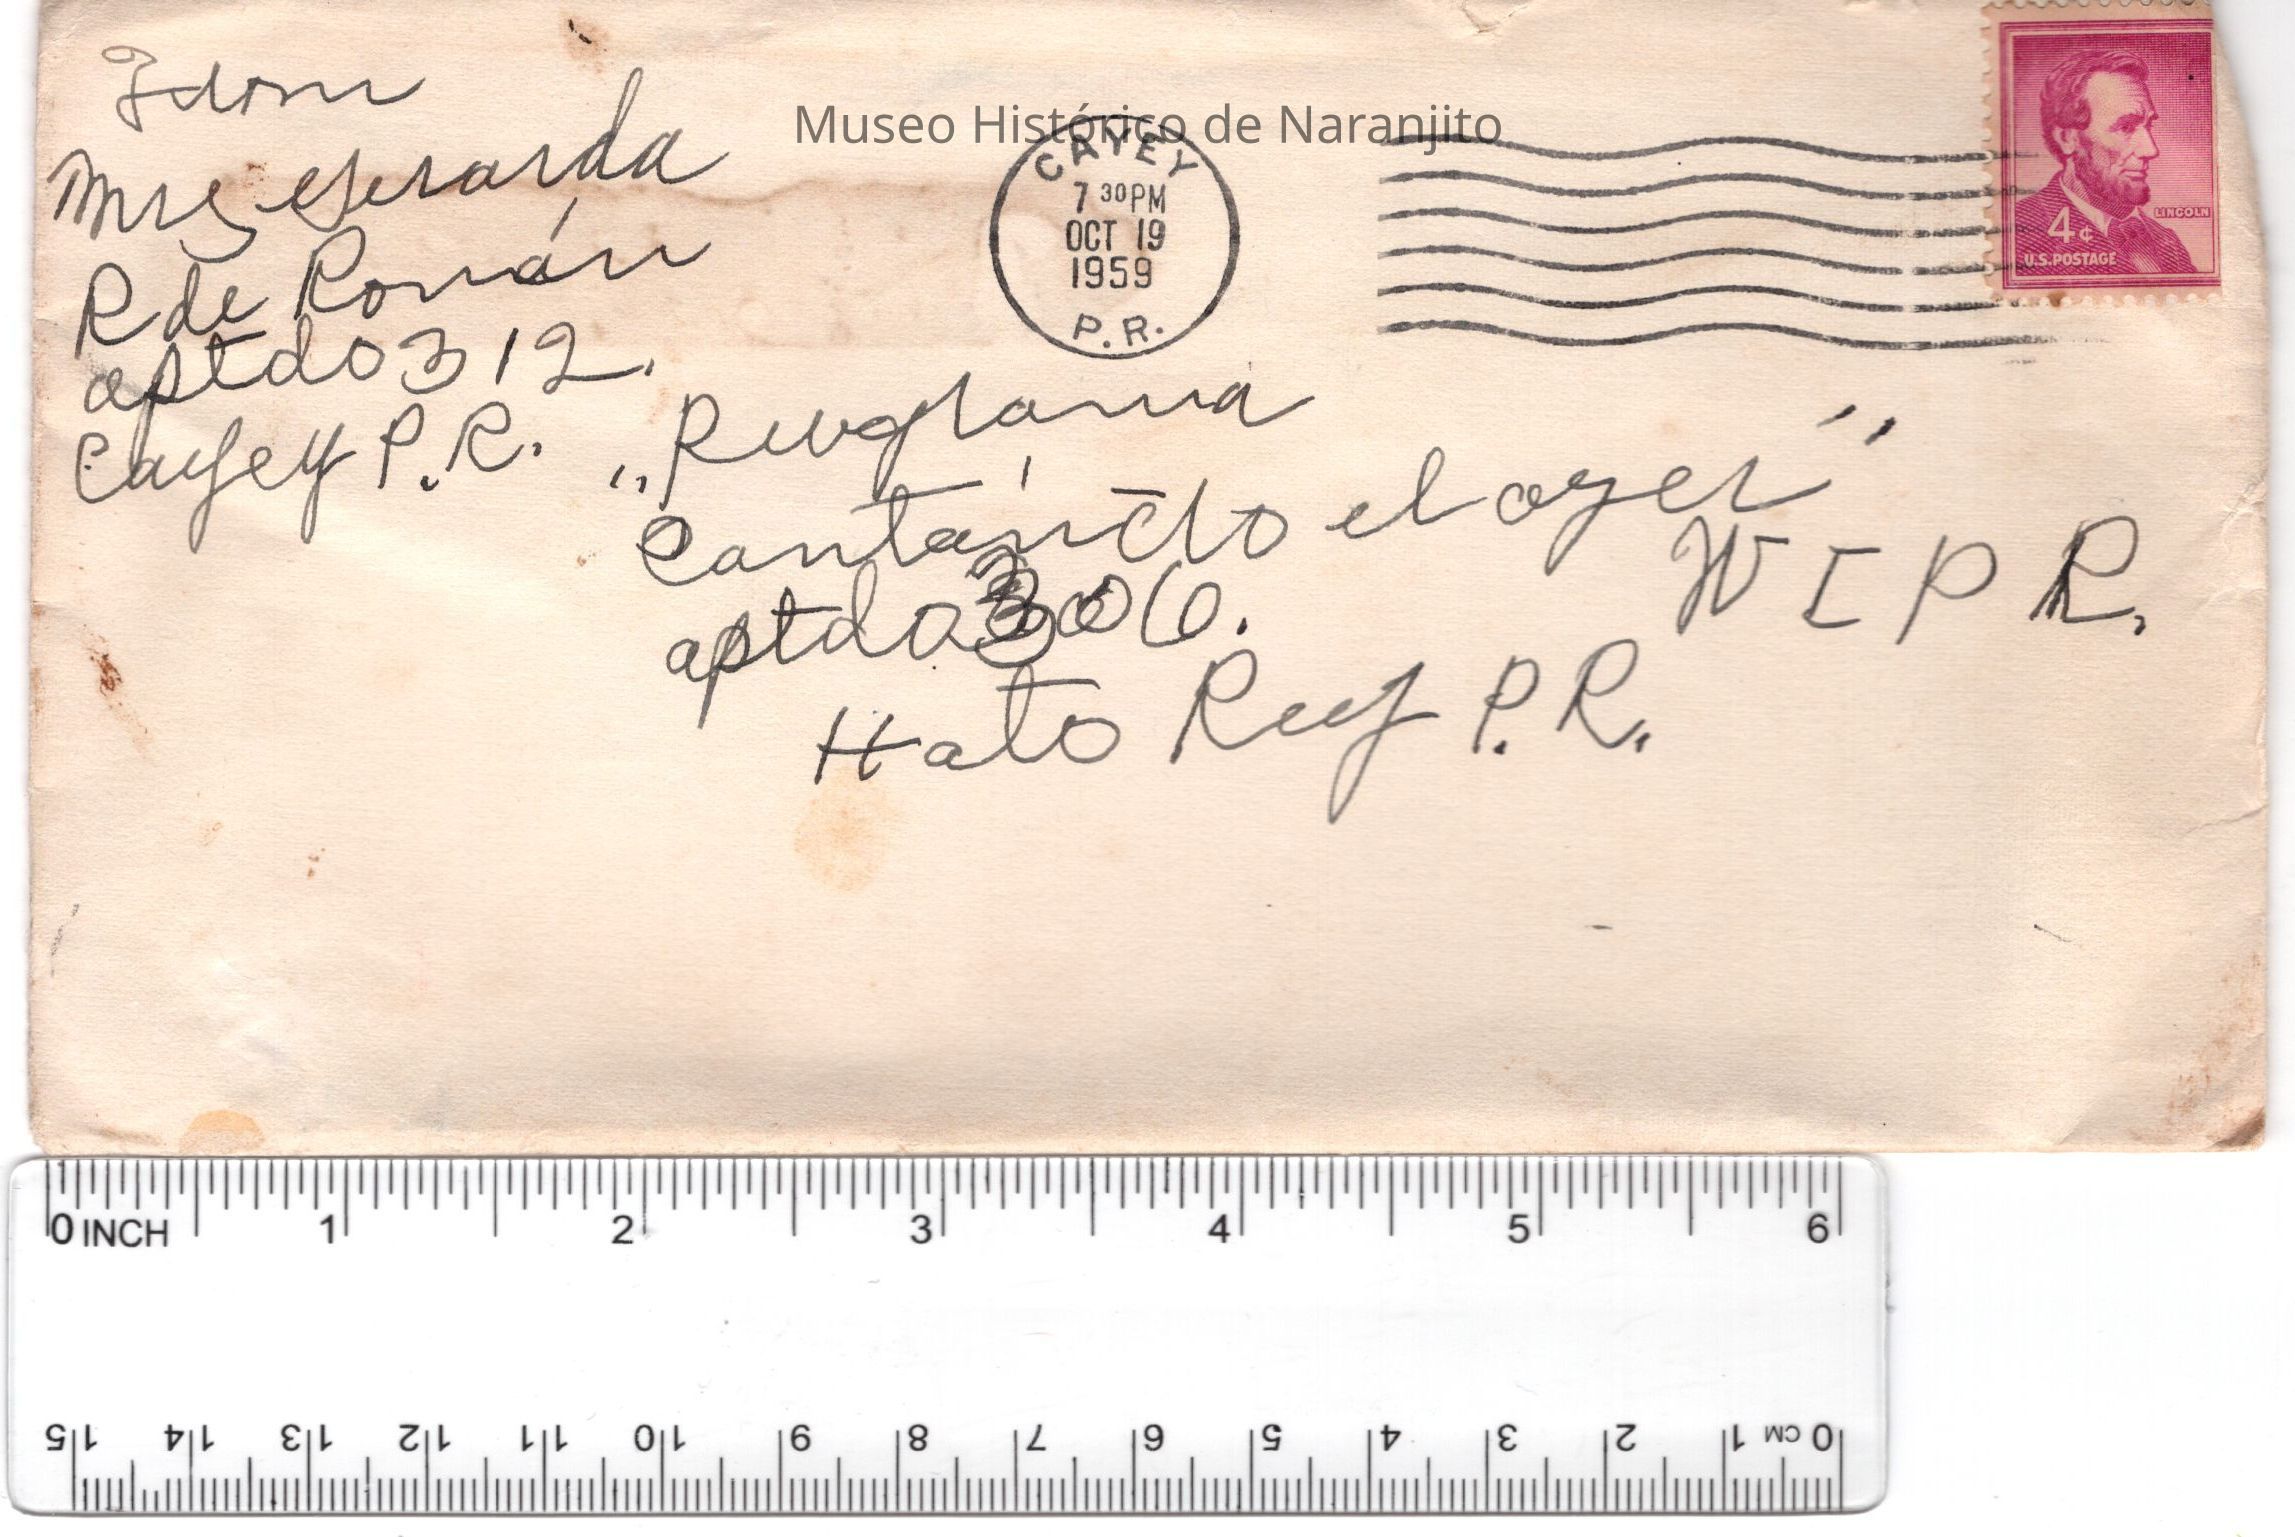 Museo Histórico de Naranjito
Mrs Gerarda
R de Román
aptdo 312.
Cayey P.R.
CAYEY
7 30PM
OCT 19
1959
P.R.
LINCOLN
4¢
U.S.POSTAGE
Cantando el ayer"
W I P R.
aptdo 306.
Hato Rey P.R.
0 INCH 1 2 3 4 5 6
15 14 13 12 11 10 9 8 7 6 5 4 3 2 1 CM 0